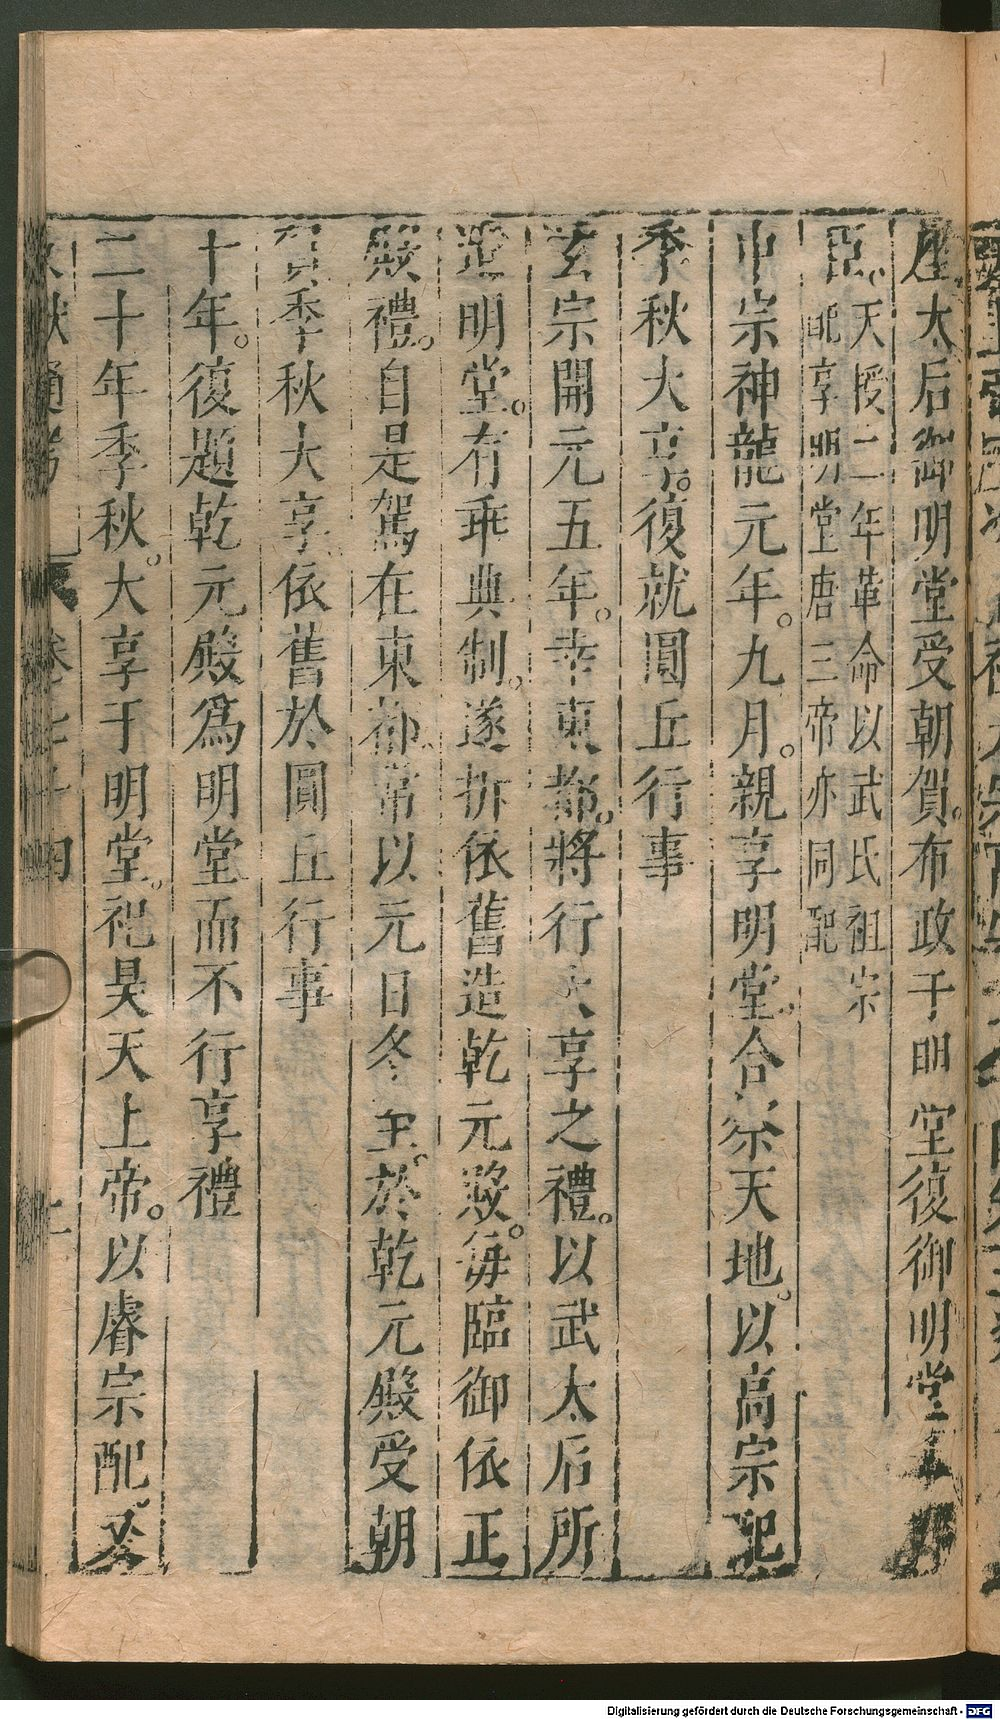 座太后御明堂受朝賀。布政于明堂復御明堂
臣。天授二年革命以武氏祖宗
配享明堂唐三帝亦同配
中宗神龍元年。九月。親享明堂。合祭天地。以高宗配
季秋大享。復就圓丘行事
玄宗開元五年。幸東都。將行大享之禮。以武太后所
造明堂。有乖典制。遂拆依舊造乾元殿。每臨御依正
殿禮。自是駕在東都。常以元日冬至。於乾元殿受朝
賀季秋大享。依舊於圓丘行事
十年。復題乾元殿爲明堂而不行享禮
二十年季秋。大享于明堂。祀昊天上帝。以睿宗配。又
文獻通考 卷七十四 十一
Digitalisierung gefördert durch die Deutsche Forschungsgemeinschaft - DFG